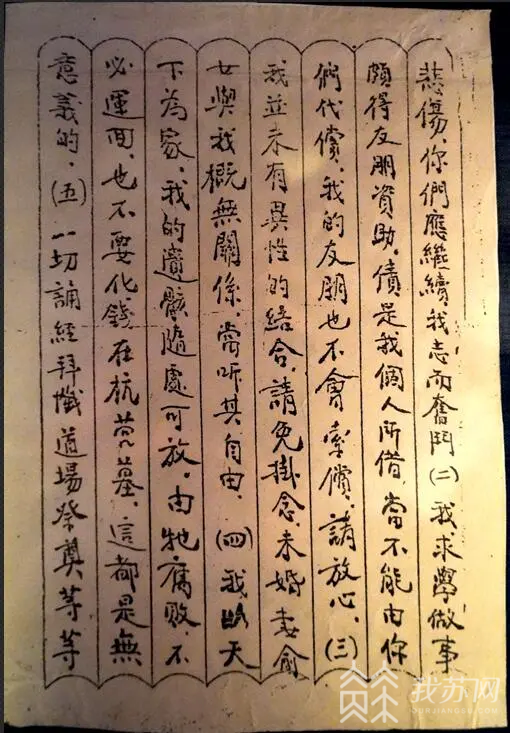 悲傷，你們應繼續我志而奮鬥(二)我求學做事
頗得友朋資助，債是我個人所借，當不能由你
們代償，我的友朋也不會索償，請放心，(三)
我並未有異性的結合，請免掛念，未婚妻俞
女與我概無關係，當听其自由，(四)我以天
下為家，我的遺骸隨處可放，由牠腐敗，不
必運回，也不要化錢在杭營墓，這都是無
意義的，(五)一切誦經拜懺道場祭奠等等
我苏网
OURJIANGSU.COM